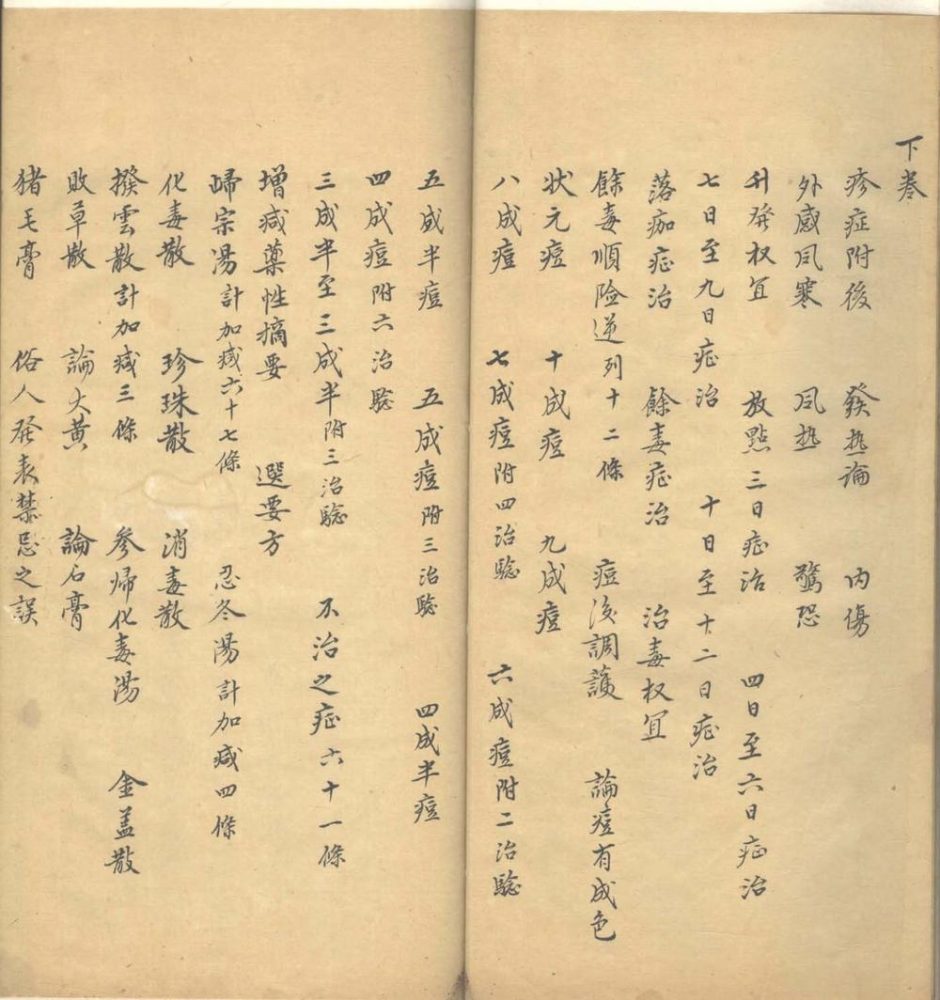 下卷
疹症附後 發热論 内傷
外感風寒 風热 驚恐
升發权宜 放點三日症治 四日至六日症治
七日至九日症治 十日至十二日症治
落痂症治 餘毒症治 治毒权宜
餘毒順險逆列十二條 痘後調護 論痘有成色
狀元痘 十成痘 九成痘
八成痘 七成痘附四治驗 六成痘附二治驗
五成半痘 五成痘附三治驗 四成半痘
四成痘附六治驗
三成半至三成半附三治驗 不治之症六十一條
增减藥性摘要 選要方
歸宗湯計加减六十七條 忍冬湯計加减四條
化毒散 珍珠散 消毒散
撥雲散計加减三條 參歸化毒湯 金盖散
敗草散 論大黄 論石膏
猪毛膏 俗人發表禁忌之誤